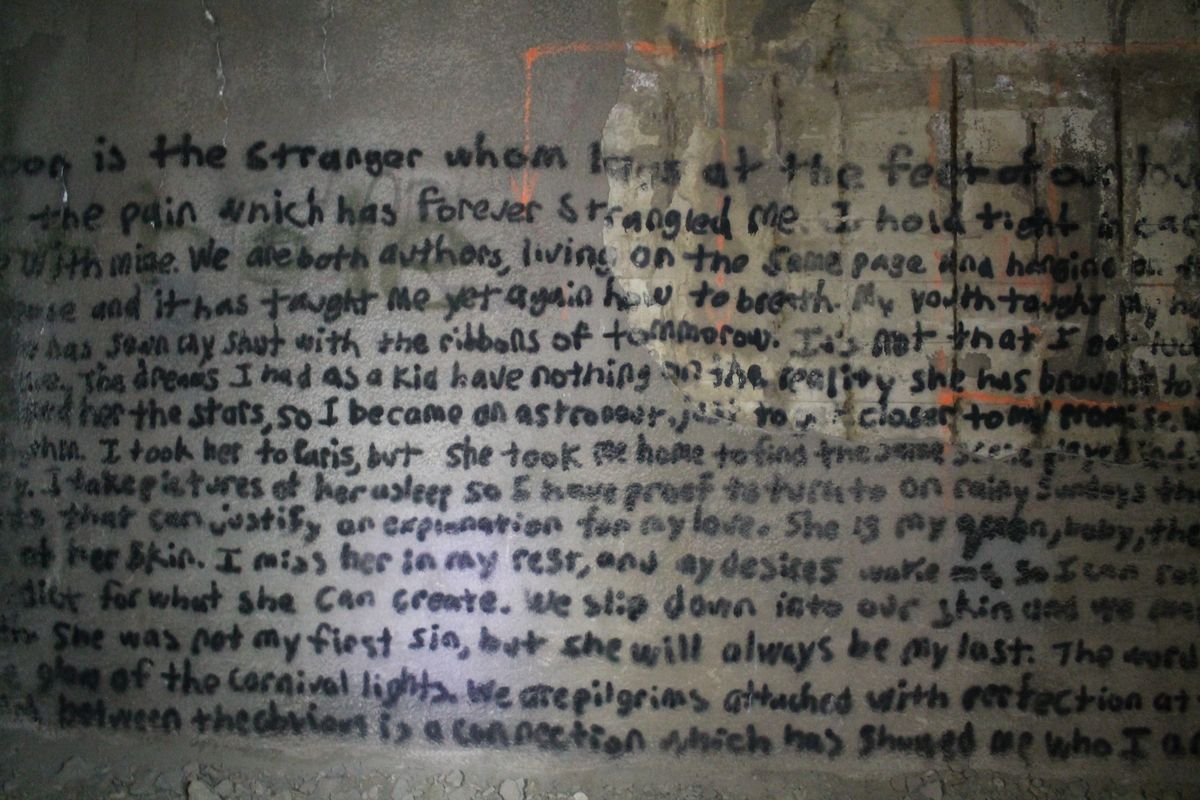 is the stranger whom at the feet of our
the pain which has forever strangled me. I hold tight
with mine. We are both authors, living on the same page and hanging on
and it has taught me yet again how to breath. My youth taught my
has sewn my shut with the ribbons of tommorow. It's not that I
The dreams I had as a kid have nothing on the reality she has brought to
her the stars, so I became an astronaut, just to get closer to my promise.
thin. I took her to Paris, but she took me home to find the same scene played
I take pictures of her asleep so I have proof to turn to on rainy Sundays
that can justify an explanation for my love. She is my queen, baby, the
at her skin. I miss her in my rest, and my desires wake me, so I can
for what she can create. We slip down into our skin and we
She was not my first sin, but she will always be my last. The word
of the carnival lights. We are pilgrims attached with perfection at
between the obvious is a connection which has showed me who I